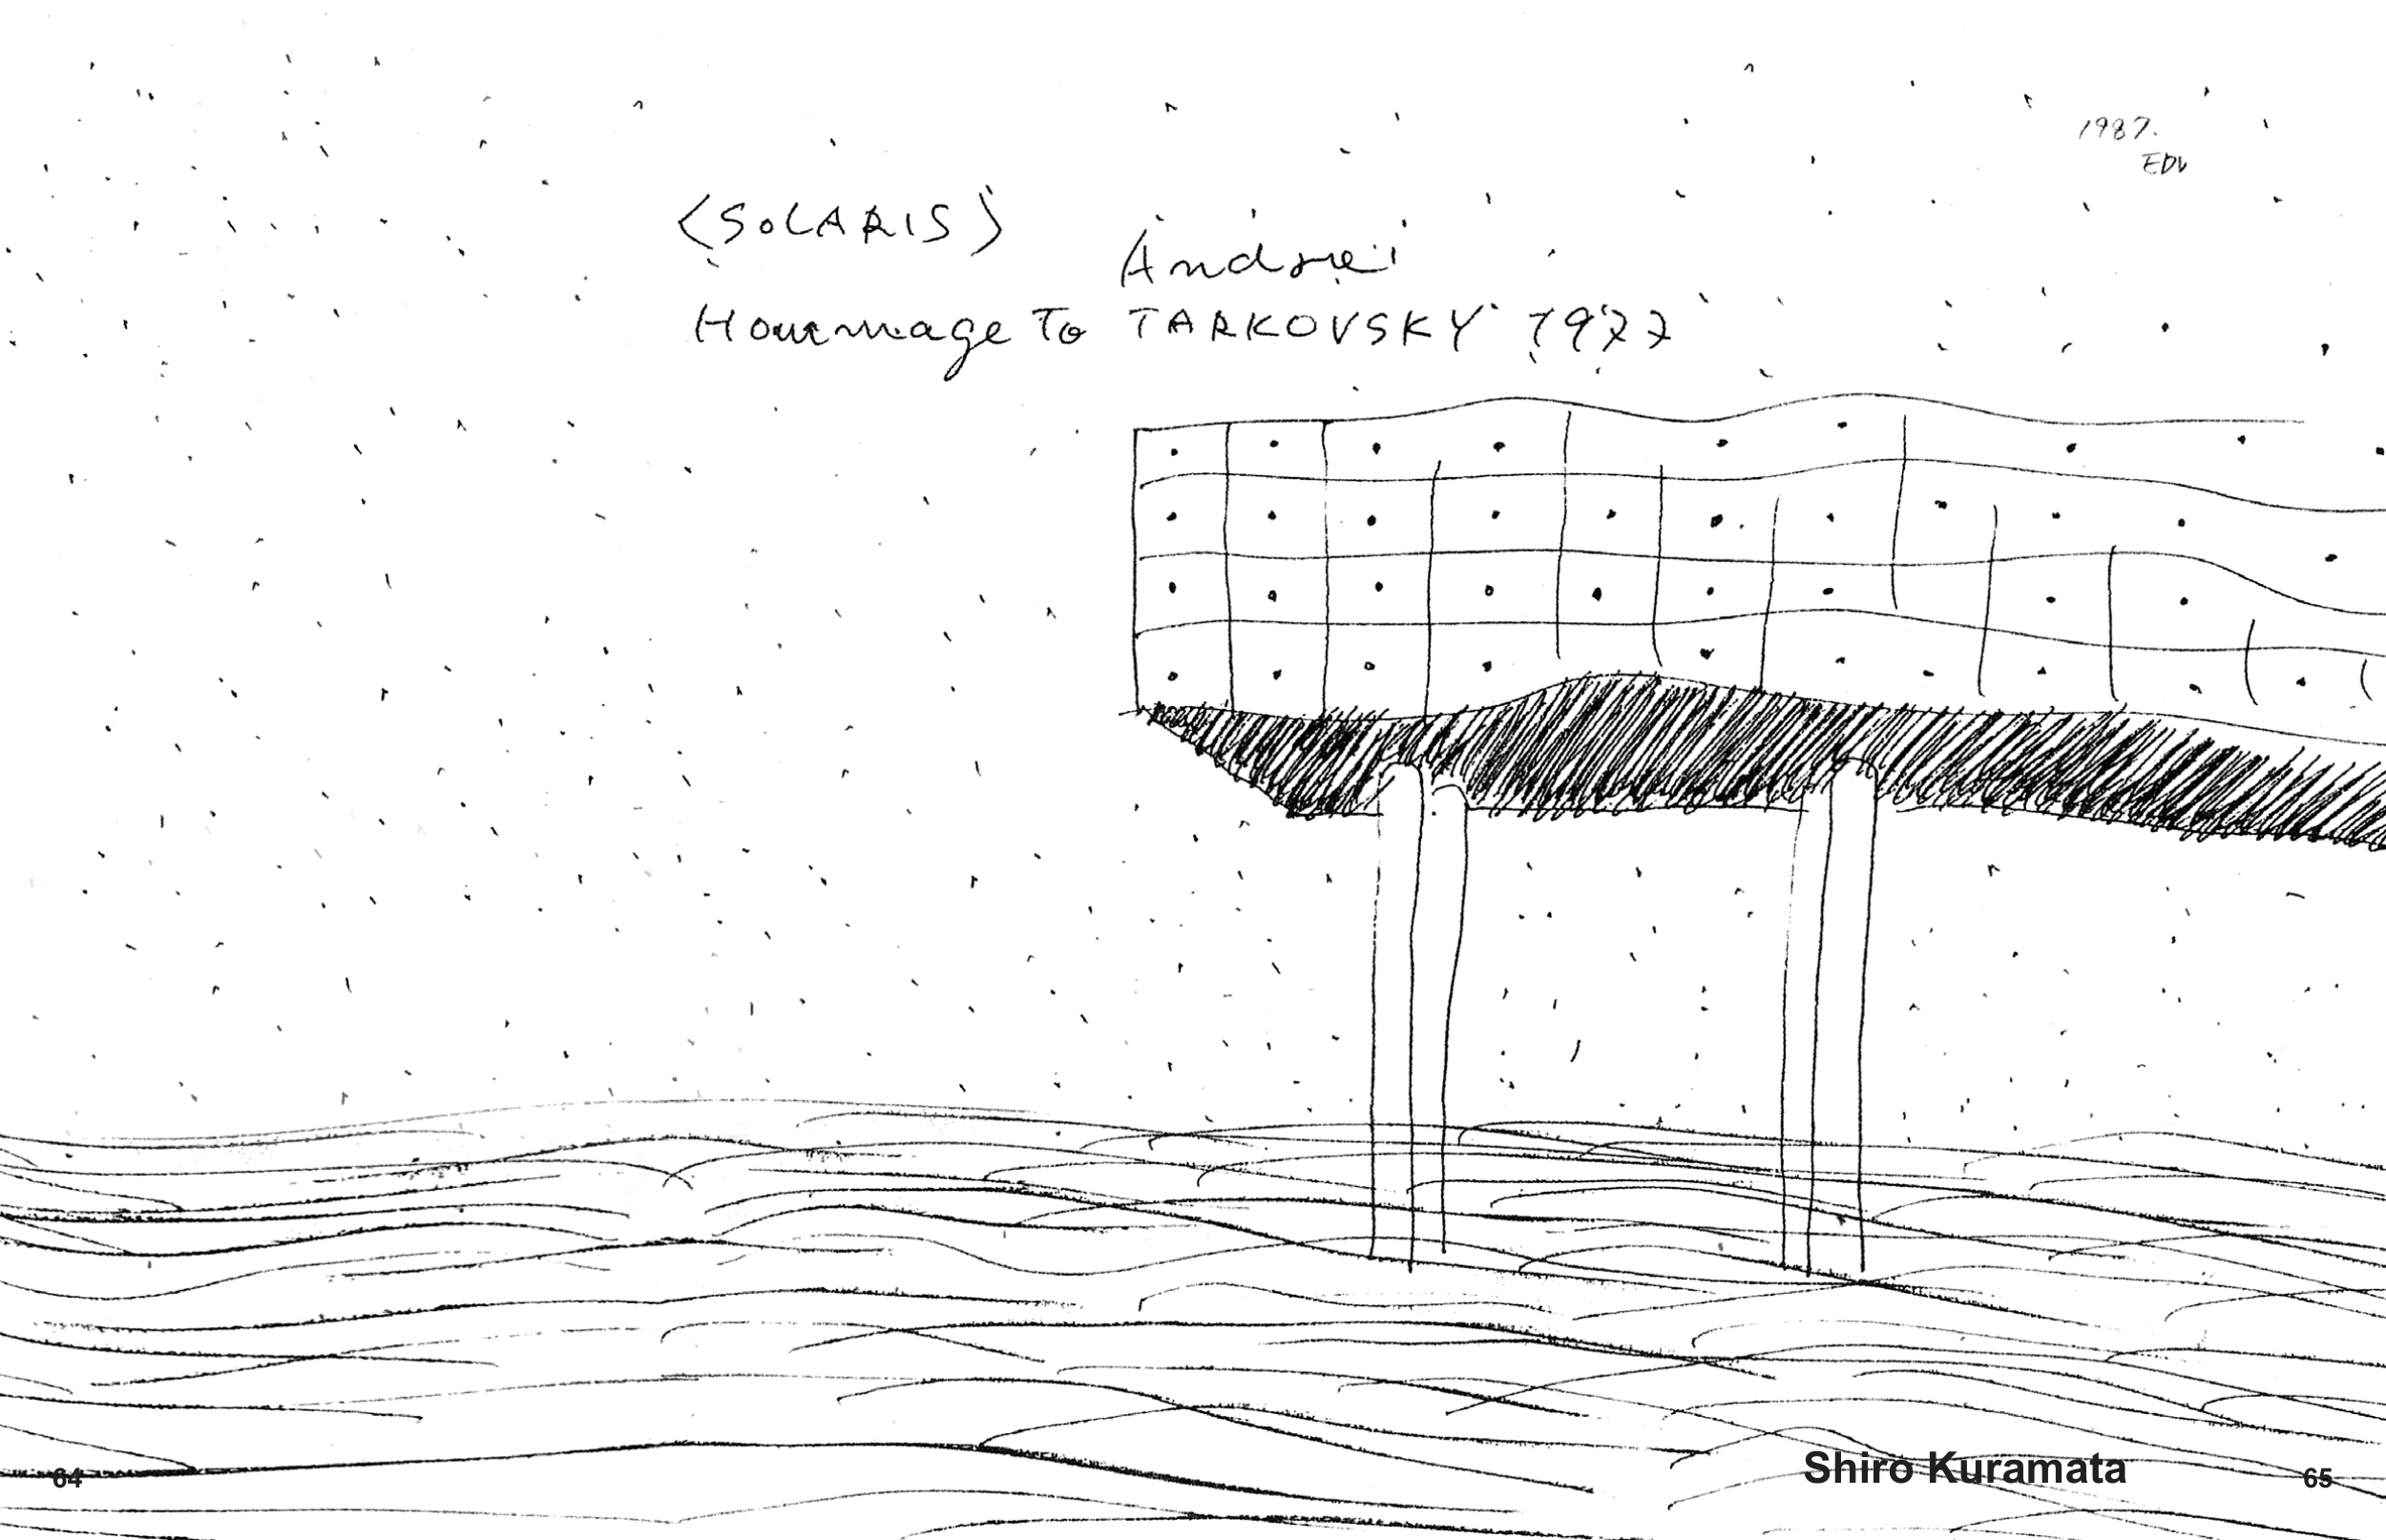 1987.
EDV
(SOLARIS)
Andrei
Hommage To TARKOVSKY 1977
64
Shiro Kuramata
65